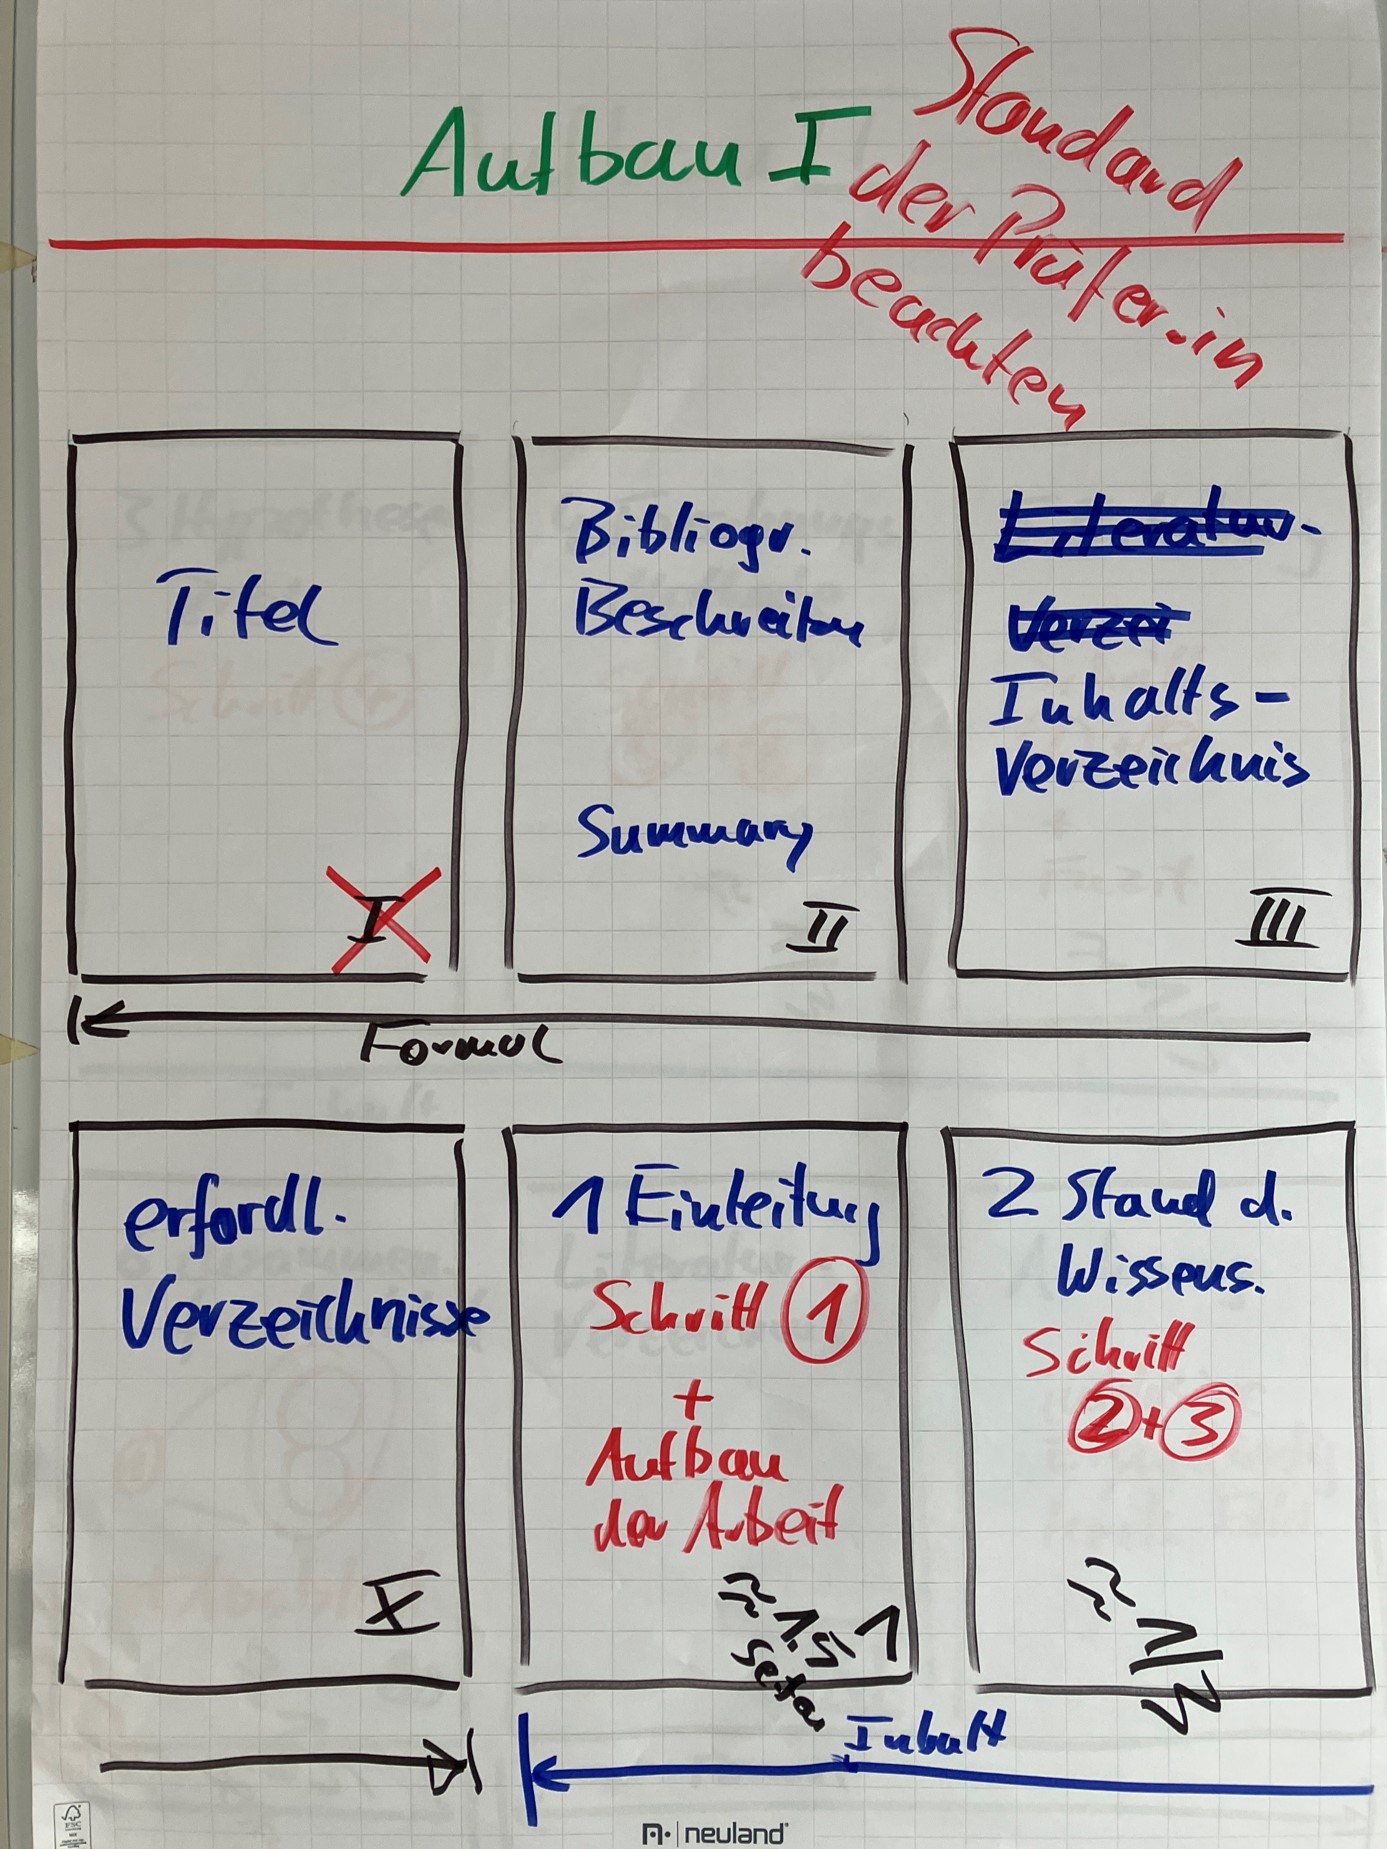 Aufbau I
Standard
der Prüfer.in
beachten
Titel
I
Bibliogr.
Beschreibung
Summary
II
Literatur-
Verzei
Inhalts-
verzeichnis
III
Formal
erfordl.
Verzeichnisse
X
1 Einleitung
Schritt 1
+
Aufbau
der Arbeit
≈ 1.5
Seiten
1
2 Stand d.
Wissens.
Schritt
2+3
≈ 1/3
Inhalt
FSC
neuland